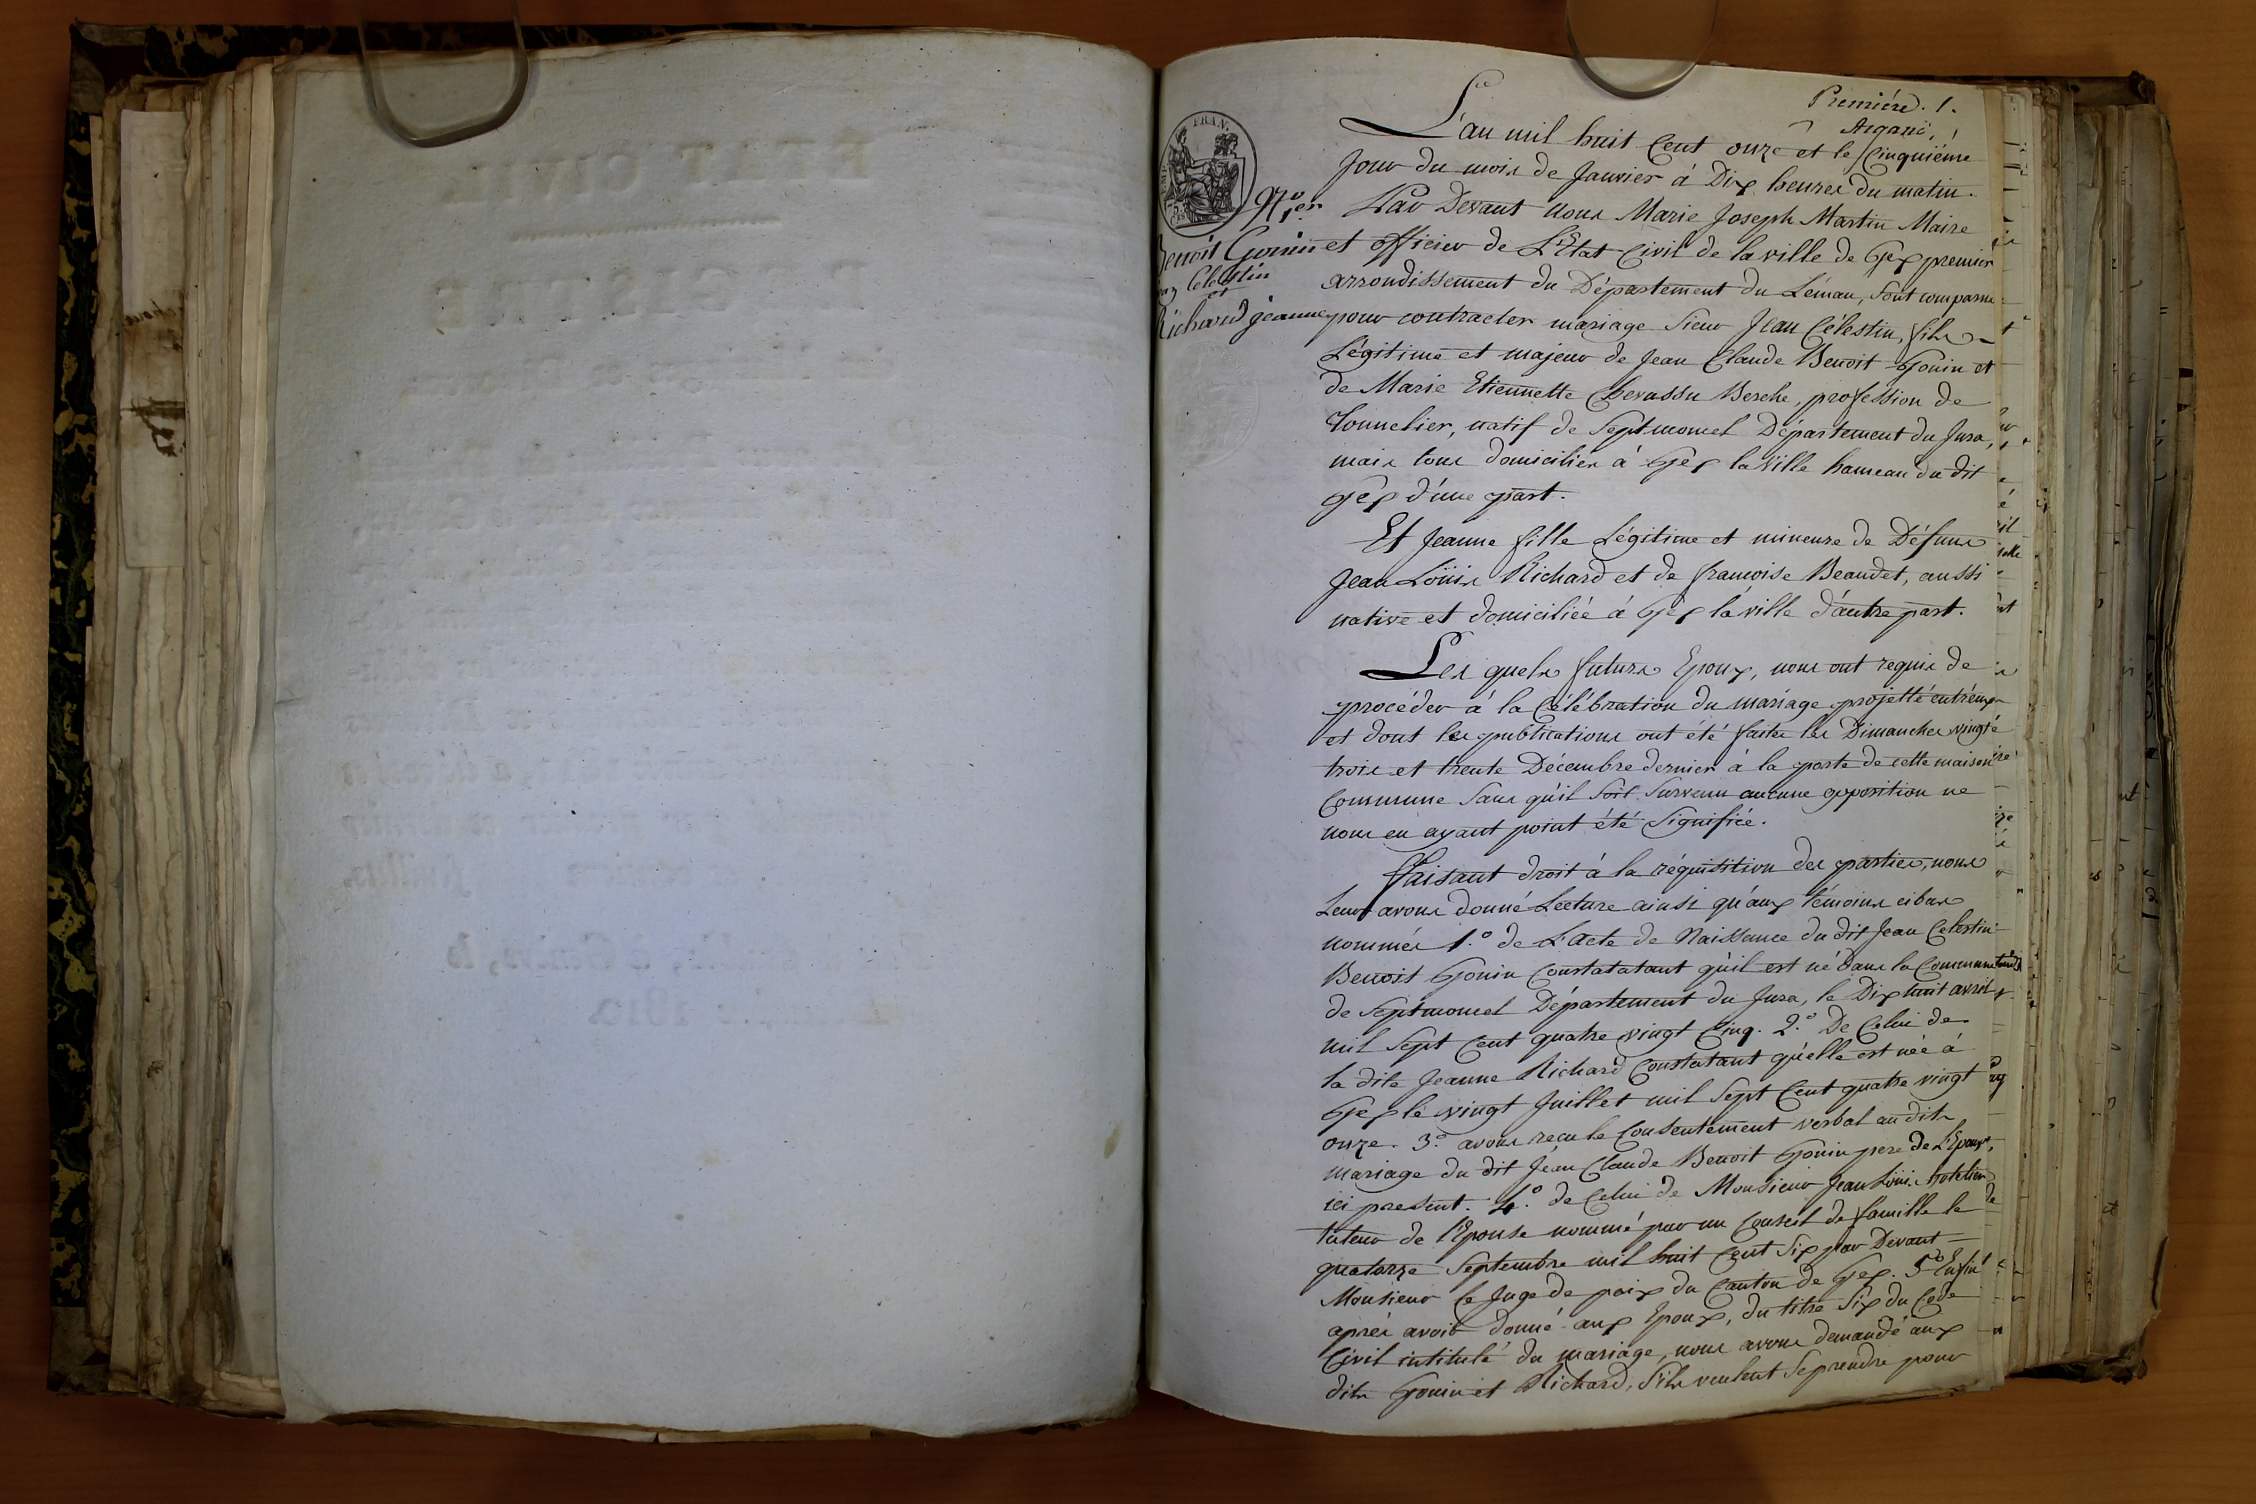 Première. 1.
L'an mil huit Cent onze et le Cinquième
Jour du mois de Janvier à Dix heures du matin.
Par Devant nous Marie Joseph Martin Maire
et officier de L'Etat Civil de la ville de Gex premier
arrondissement du Département du Léman, sont comparus
pour contracter mariage Sieur Jean Célestin, fils
Légitime et majeur de Jean Claude Benoit Gonin et
de Marie Etiennette Chevassu Berche, profession de
Tonnelier, natif de Septmoncel Département du Jura,
mais tous domiciliés à Gex la Ville hameau du dit
Gex d'une part.
Et Jeanne fille Légitime et mineure de Défunt
Jean Loüis Richard et de francoise Beaudet, aussi
native et domiciliée à Gex la ville d'autre part.
Les quels futurs Epoux, nous ont requis de
procéder à la Célébration du mariage projetté entr'eux
et dont les publications ont été faites les Dimanches vingt
trois et trente Décembre dernier à la porte de cette maison
Commune Sans qu'il soit Survenu aucune opposition ne
nous en ayant point été Signifiée.
Faisant droit à la réquisition des parties, nous
Leur avons donné Lecture ainsi qu'aux témoins cibas
nommés 1.° de L'acte de Naissance du dit Jean Celestin
Benoit Gonin Constatatant qu'il est né dans la Commune
de Septmoncel Département du Jura, le Dix huit avril
mil Sept Cent quatre vingt Cinq. 2.° De Celui de
la dite Jeanne Richard Constatant qu'elle est née à
Gex le vingt Juillet mil Sept Cent quatre vingt
onze. 3.° avons reçu le Consentement verbal au dit
mariage du dit Jean Claude Benoit Gonin pere de L'Epoux,
ici present. 4.° de Celui de Monsieur Jean Loüis
tuteur de l'Epouse nommé par un Conseil de famille le
quatorze Septembre mil huit Cent Six par Devant
Monsieur le Juge de paix du Canton de Gex. 5.° Enfin
après avoir donné aux Epoux, du titre Six du Code
Civil intitulé du mariage, nous avons demandé aux
dits Gonin et Richard, S'ils veulent Se prendre pour
N.° 1er
Benoit Gonin
Jean Celestin
et
Richard Jeanne
EMP. FRAN.